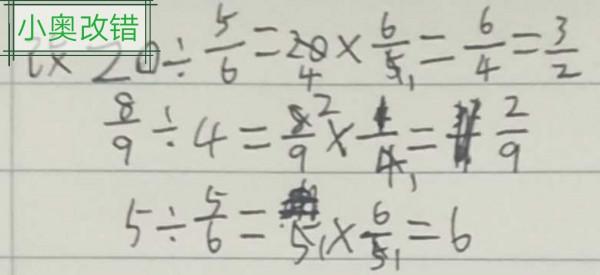 小奥改错
20÷5/6=20/4×6/5,=6/4=3/2
8/9÷4=8²/9×1/4,=2/9
5÷5/6=5,×6/5,=6